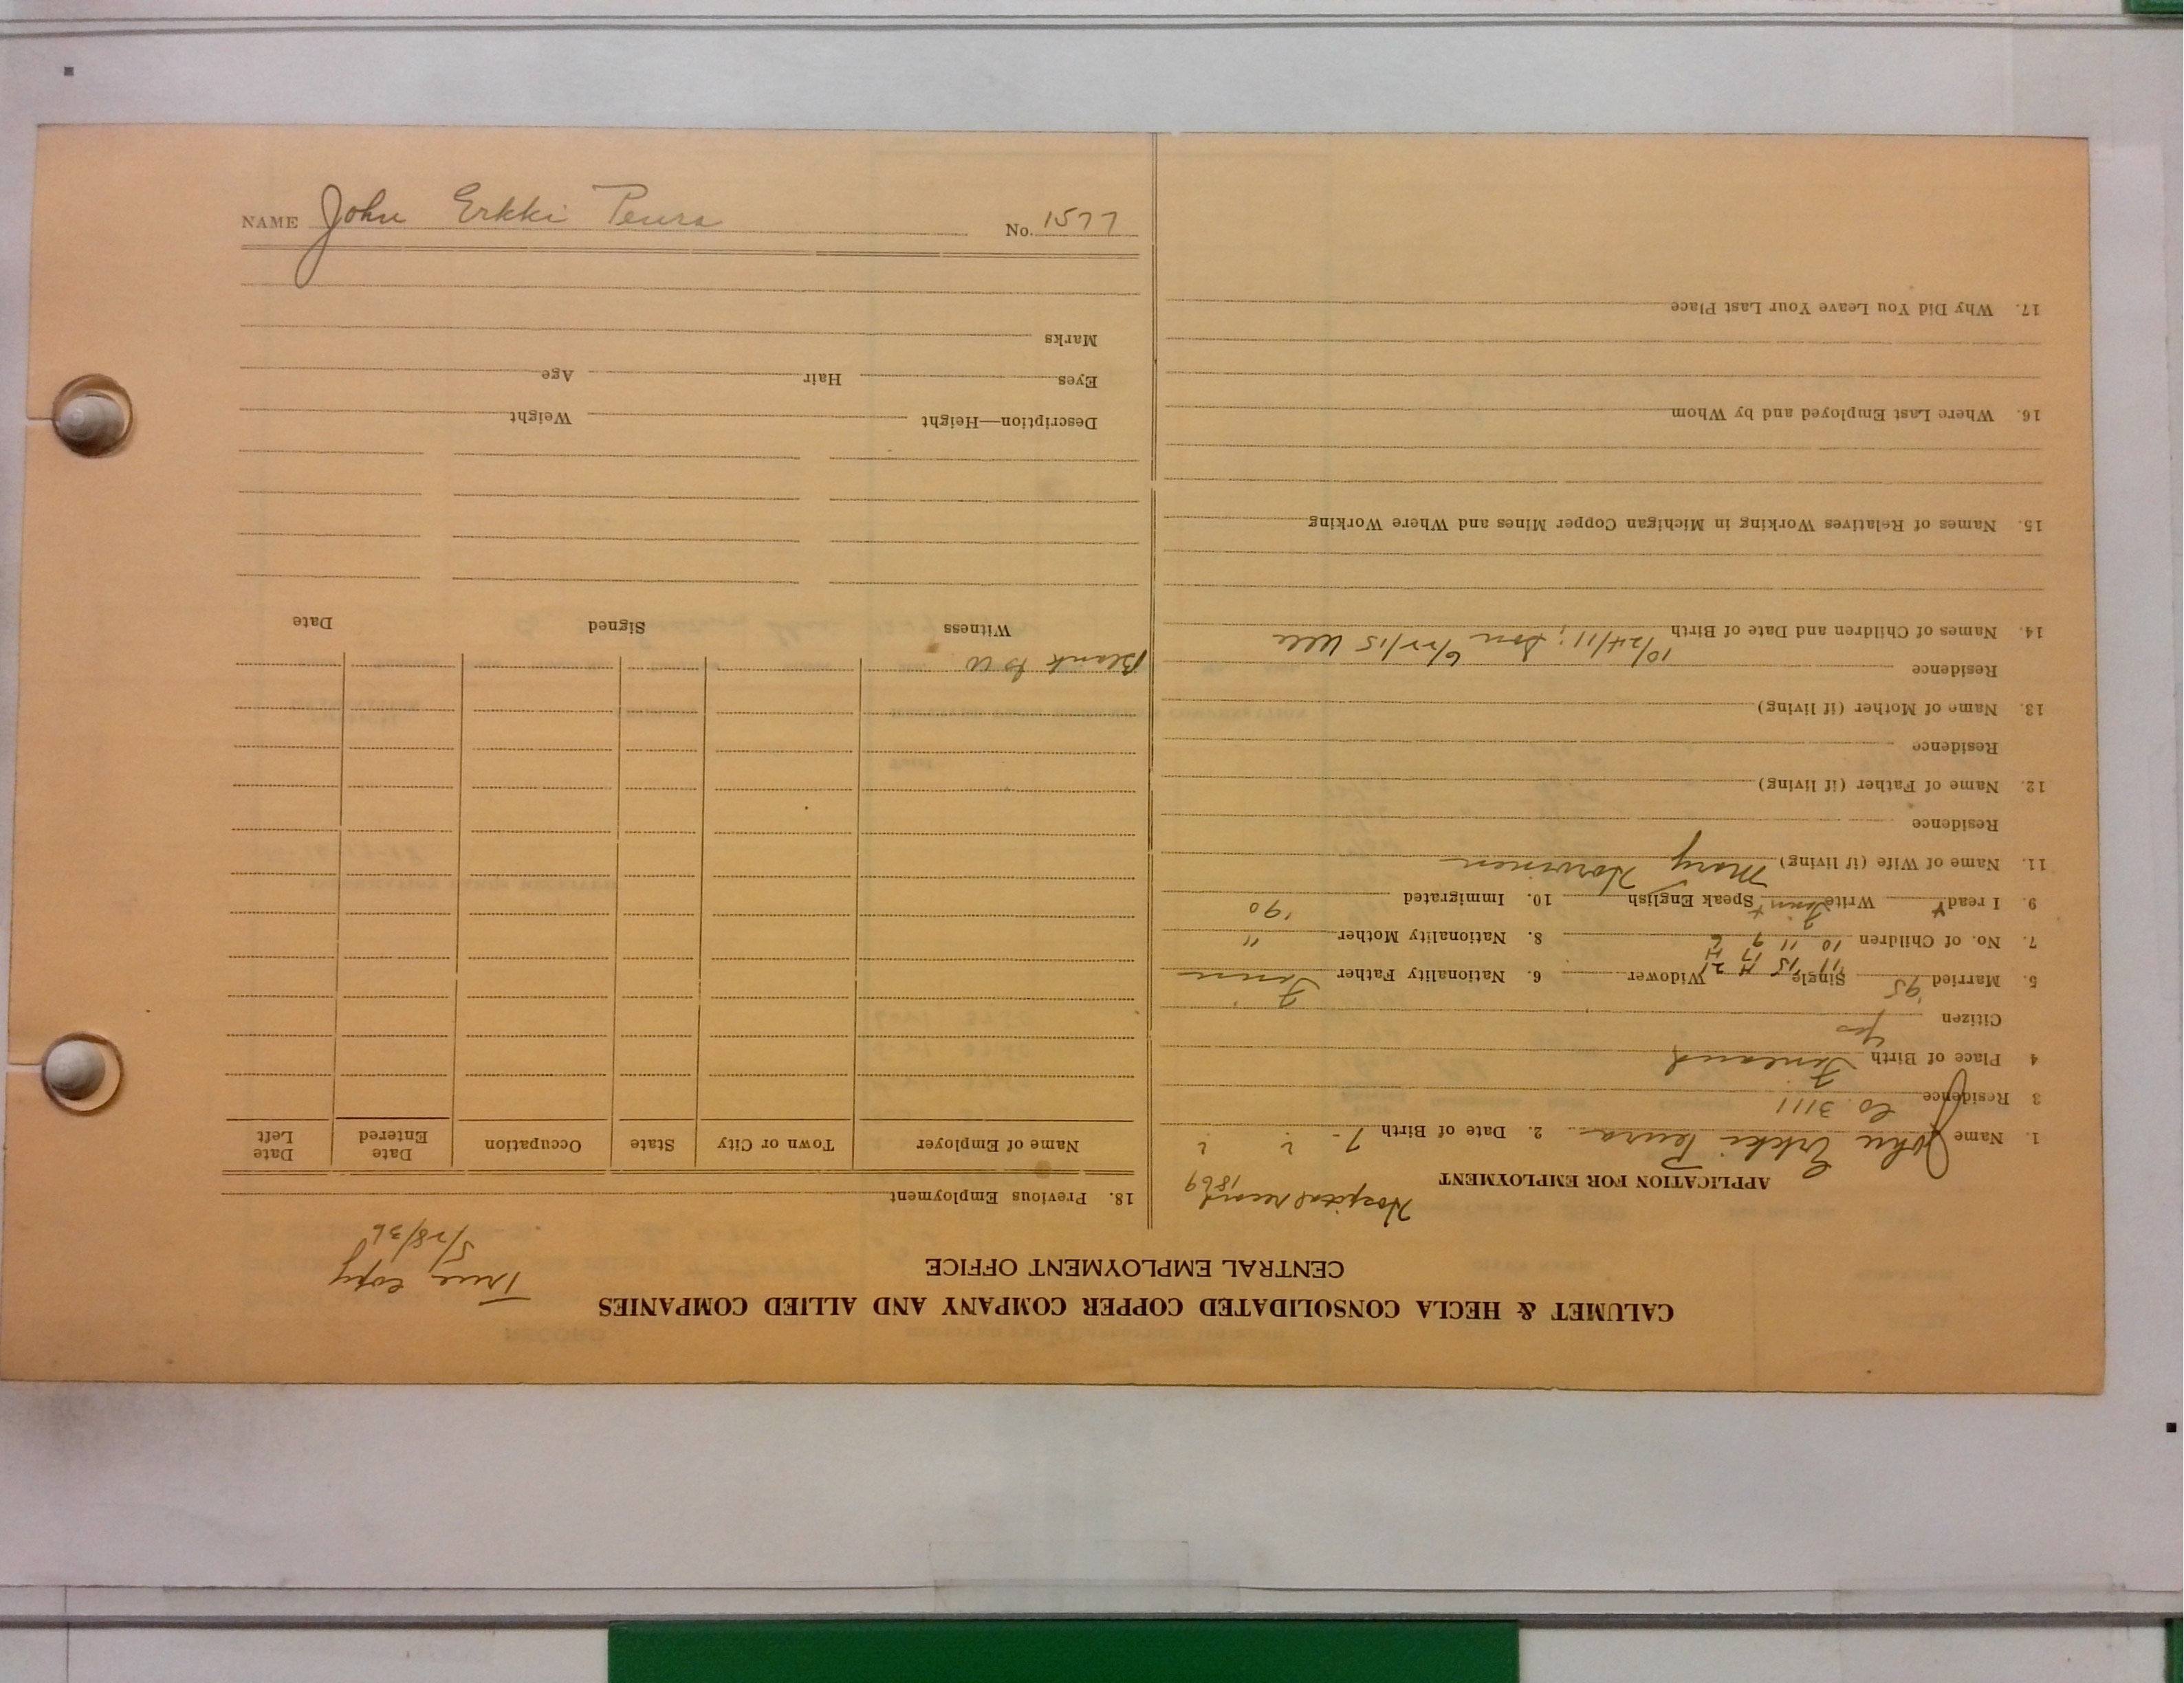 NAME John Erkki Peura No. 1577
CALUMET & HECLA CONSOLIDATED COPPER COMPANY AND ALLIED COMPANIES
CENTRAL EMPLOYMENT OFFICE
True copy
5/28/36
APPLICATION FOR EMPLOYMENT
Hospital record
1869
1. Name John Erkki Peura 2. Date of Birth ? - ? ?
3 Residence Co 3111
4 Place of Birth Finland
Citizen yes
5. Married '95 Single Widower 6. Nationality Father Finn
7. No. of Children 10 11 9 8. Nationality Mother "
9. I read Write Finn Speak English 10. Immigrated '90
11. Name of Wife (if living) Mary
Residence
12. Name of Father (if living)
Residence
13. Name of Mother (if living)
Residence
14. Names of Children and Date of Birth 10/24/11; Son 6/22/15
15. Names of Relatives Working in Michigan Copper Mines and Where Working
16. Where Last Employed and by Whom
17. Why Did You Leave Your Last Place
18. Previous Employment
Name of Employer Town or City State Occupation Date Entered Date Left
Blank to W
Witness Signed Date
Description—Height Weight
Eyes Hair Age
Marks